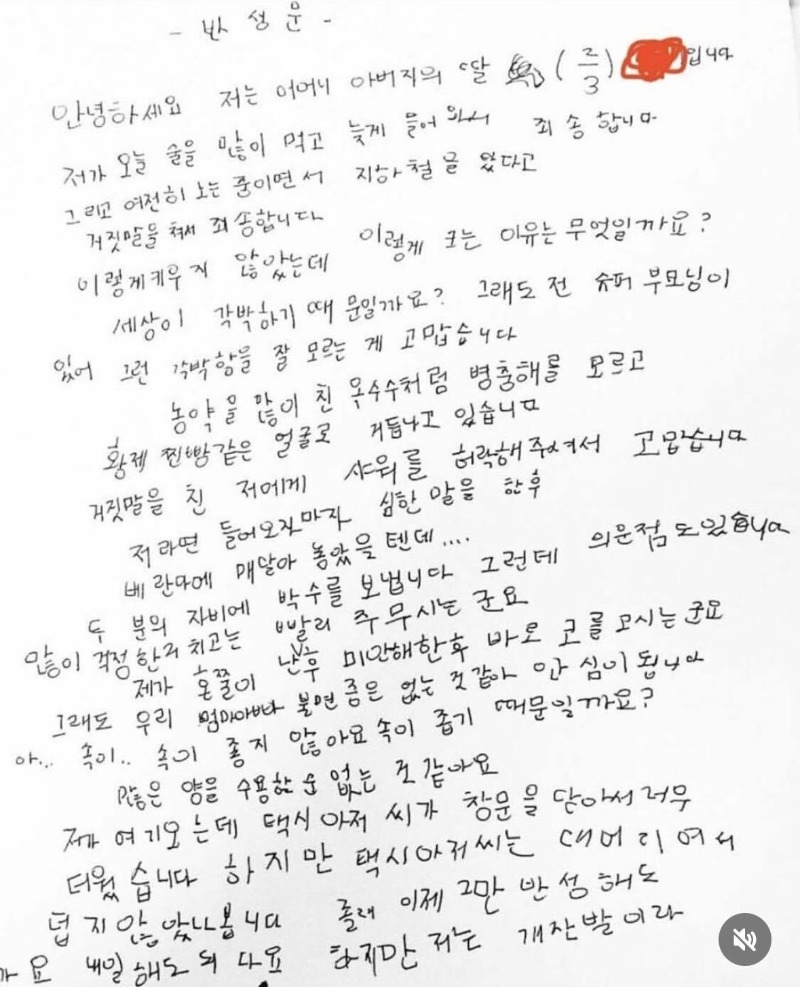 - 반 성 문 -
안녕하세요 저는 어머니 아버지의 딸 (2/3) 입니다
저가 오늘 술을 많이 먹고 늦게 들어 와서 죄송합니다
그리고 여전히 노는 중이면서 지하철을 왔다고
거짓말을 쳐서 죄송합니다
이렇게키우지 않았는데 이렇게 크는 이유는 무엇일까요?
세상이 각박하기 때문일까요? 그래도 전 슈퍼 부모님이
있어 그런 각박함을 잘 모르는 게 고맙습니다
농약을 많이 친 옥수수처럼 병충해를 모르고
황제 찐빵같은 얼굴로 거듭나고 있습니다
거짓말을 친 저에게 샤워를 허락해주셔서 고맙습니다
저라면 들어오자마자 심한 말을 한후
베란다에 매달아 놓았을 텐데....
두 분의 자비에 박수를 보냅니다 그런데 의문점도있습니다
많이 걱정한거 치고는 빨리 주무시는 군요
제가 혼쭐이 난후 미안해한후 바로 코를 고시는군요
그래도 우리 엄마아빠가 불면증은 없는 것 같아 안심이 됩니다
아... 속이.. 속이 좋지 않아요 속이 좁기 때문일까요?
많은 양을 수용할 순 없는 것 같아요
제가 여기오는데 택시아저씨가 창문을 닫아서 너무
더웠습니다 하지만 택시아저씨는 대머리여서
덥지않았나봅니다 졸래 이제 그만 반성해도
가요 내일 해도 되 다요 하지만 저는 개잔발이라